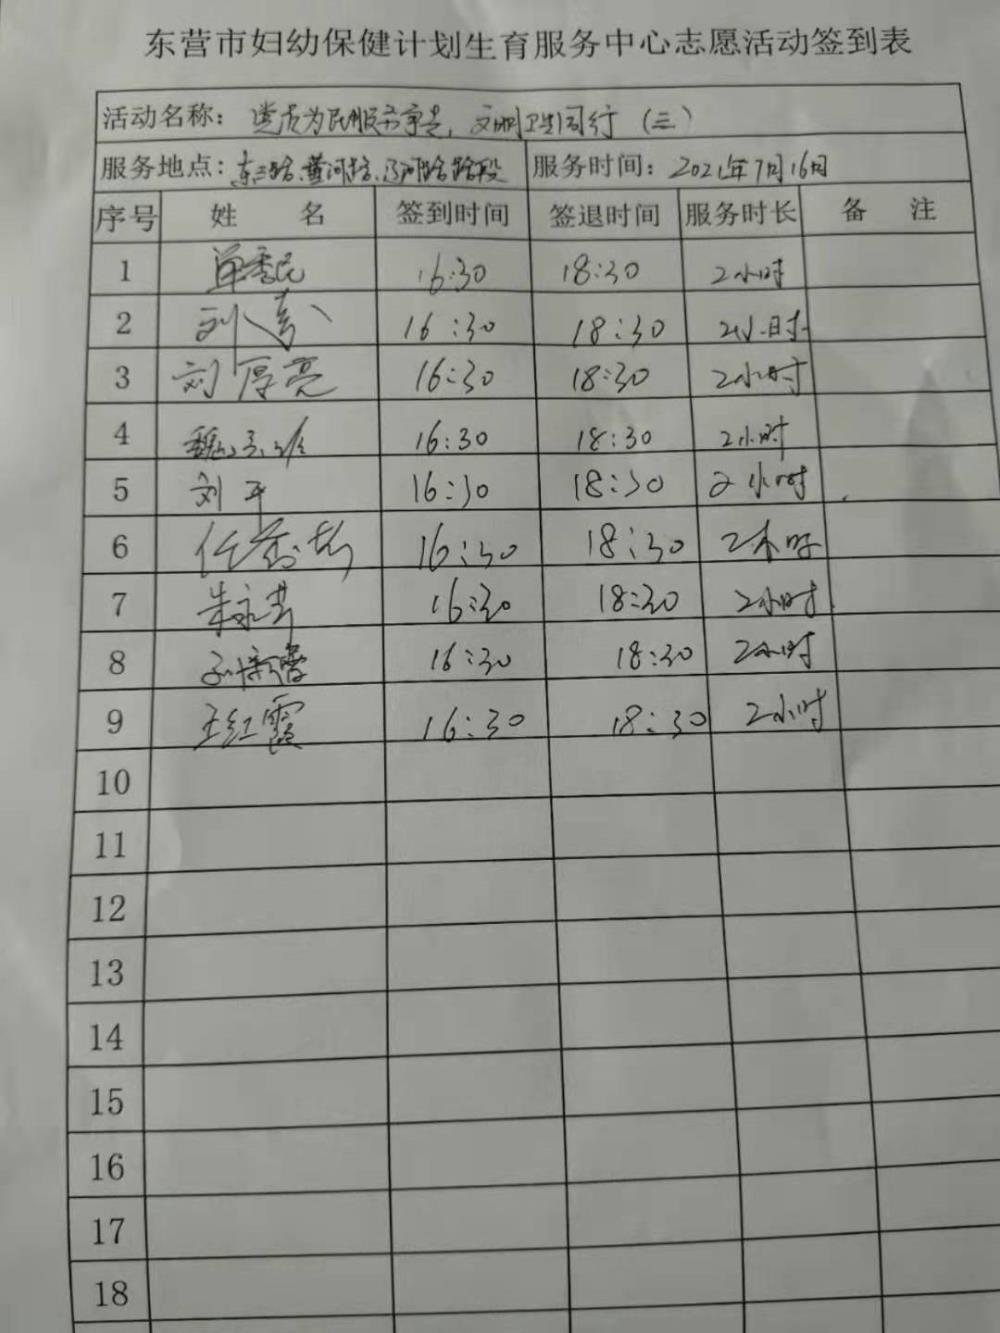 东营市妇幼保健计划生育服务中心志愿活动签到表
活动名称: 党员为民服务事, 文明卫生同行 (三)
服务地点: 东三路、黄河路、辽河路路段 服务时间: 2021年7月16日
序号 姓 名 签到时间 签退时间 服务时长 备 注
1 单秀民 16:30 18:30 2小时
2 刘 16:30 18:30 2小时
3 刘厚亮 16:30 18:30 2小时
4 魏 16:30 18:30 2小时
5 刘平 16:30 18:30 2小时
6 任 16:30 18:30 2小时
7 朱永芳 16:30 18:30 2小时
8 孙 16:30 18:30 2小时
9 王红霞 16:30 18:30 2小时
10
11
12
13
14
15
16
17
18